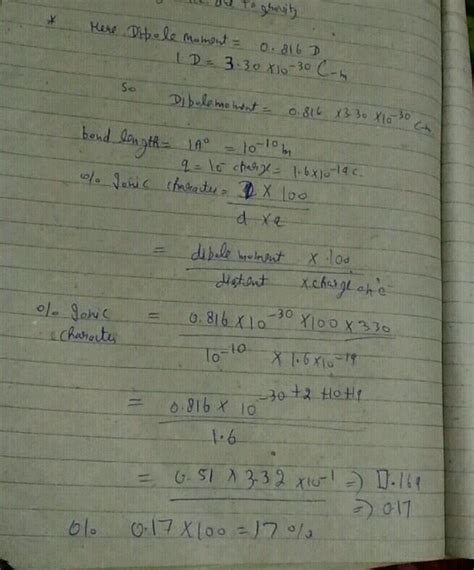 to gravity
* Here Dipole Moment = 0.816 D
1 D = 3.30 × 10⁻³⁰ C-m
so
Dipole moment = 0.816 × 3.30 × 10⁻³⁰ C-m
bond length = 1A° = 10⁻¹⁰ m
q = charge = 1.6 × 10⁻¹⁹ c.
% Ionic character = × 100
d × q
= dipole moment × 100
distient × charge on e
% Ionic character = 0.816 × 10⁻³⁰ × 100 × 330
10⁻¹⁰ × 1.6 × 10⁻¹⁹
= 0.816 × 10⁻³⁰⁺²⁺¹⁰⁺¹⁹
1.6
= 0.51 × 3.32 × 10⁻¹ => 0.169
=> 0.17
0% 0.17 × 100 = 17 %